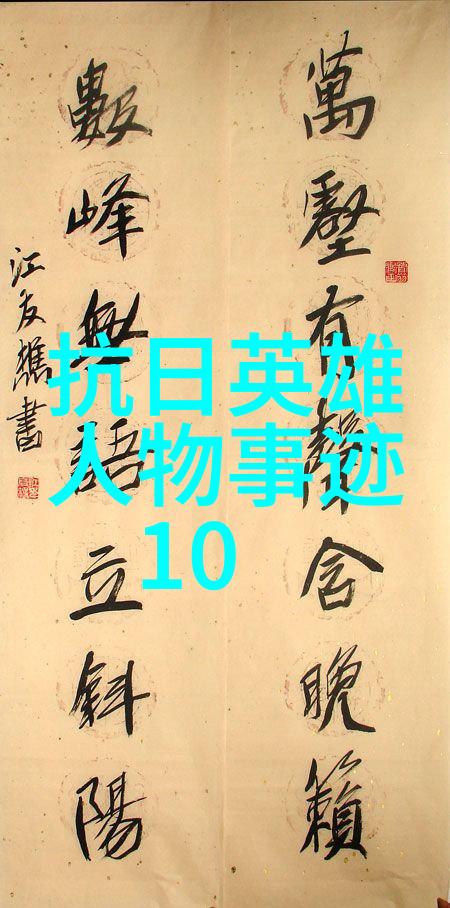 抗日英雄
人物事迹
10
萬壑有聲含晚籟
數峰無語立斜陽
江友樵書